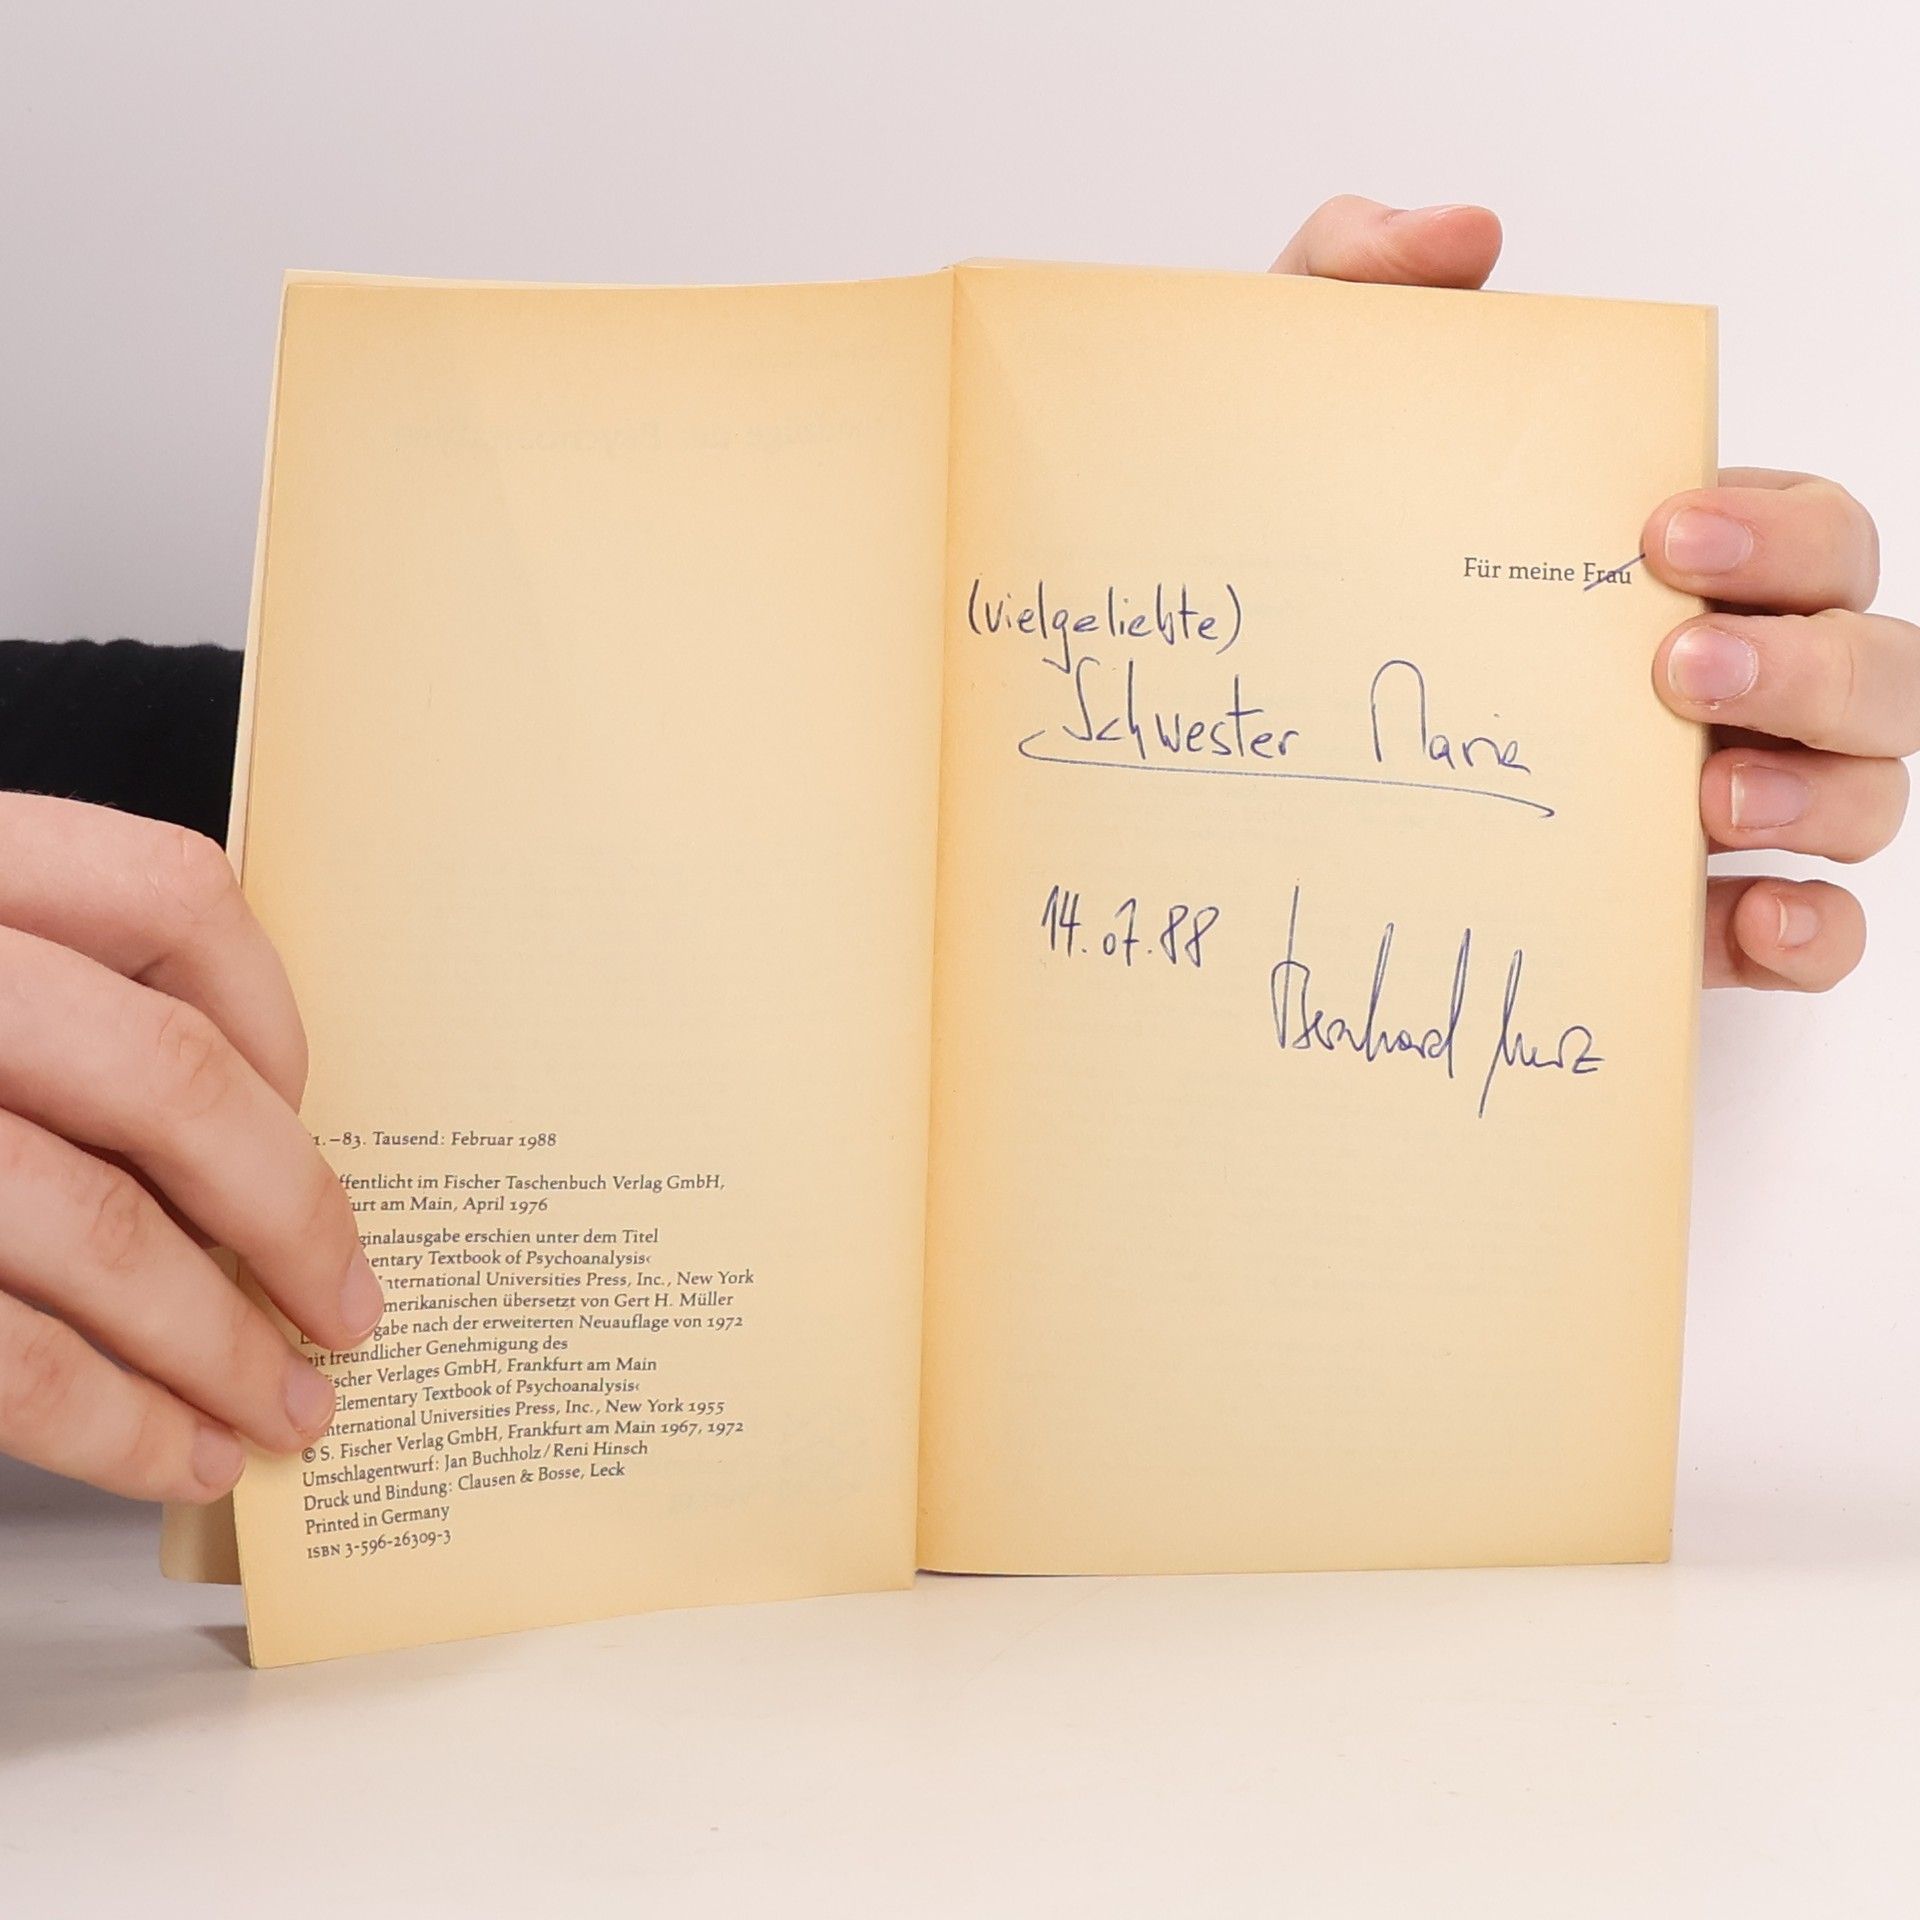 1.–83. Tausend: Februar 1988
ffentlicht im Fischer Taschenbuch Verlag GmbH,
urt am Main, April 1976
ginalausgabe erschien unter dem Titel
entary Textbook of Psychoanalysis‹
International Universities Press, Inc., New York
merikanischen übersetzt von Gert H. Müller
gabe nach der erweiterten Neuauflage von 1972
it freundlicher Genehmigung des
ischer Verlages GmbH, Frankfurt am Main
Elementary Textbook of Psychoanalysis‹
International Universities Press, Inc., New York 1955
© S. Fischer Verlag GmbH, Frankfurt am Main 1967, 1972
Umschlagentwurf: Jan Buchholz/Reni Hinsch
Druck und Bindung: Clausen & Bosse, Leck
Printed in Germany
ISBN 3-596-26309-3
Für meine Frau
(vielgeliebte)
Schwester Maria
14.07.88 Bernhard